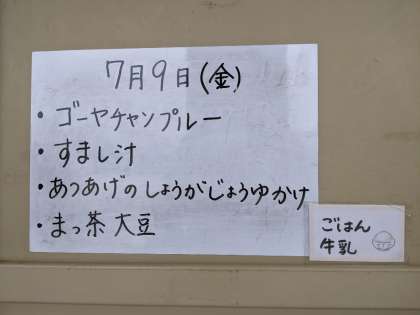 7月9日(金)
・ゴーヤチャンプルー
・すまし汁
・あつあげのしょうがじょうゆかけ
・まっ茶大豆
ごはん
牛乳